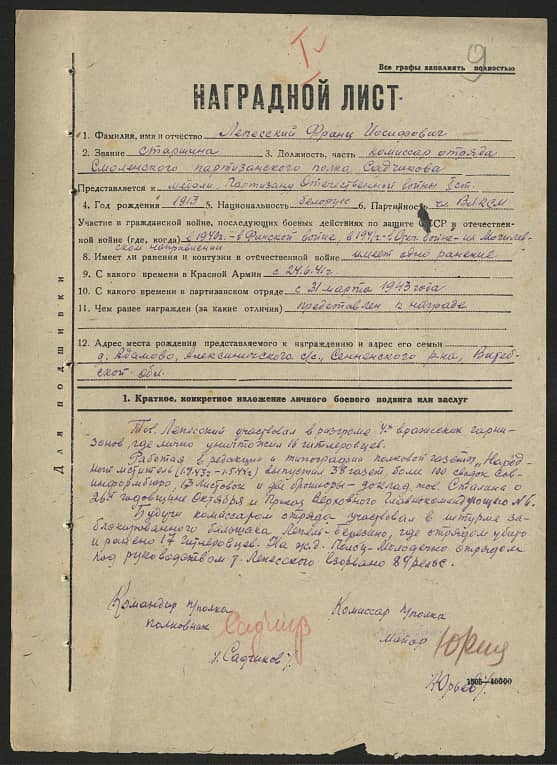 I
9
Все графы заполнять полностью
НАГРАДНОЙ ЛИСТ
1. Фамилия, имя и отчество Лепесский Франц Иосифович
2. Звание старшина 3. Должность, часть комиссар отряда
Смоленского партизанского полка Садчикова
Представляется к медали „Партизану Отечественной войны" I ст.
4. Год рождения 1913 5. Национальность белорус 6. Партийность чл. ВЛКСМ
Участие в гражданской войне, последующих боевых действиях по защите СССР и отечествен-
ной войне (где, когда) в 1940г.-в Финской войне, в 1941г.-в Отеч. войне-на Могилев-
ском направлении
8. Имеет ли ранения и контузии в отечественной войне имеет одно ранение
9. С какого времени в Красной Армии с 24.6.41г.
10. С какого времени в партизанском отряде с 31 марта 1943 года
11. Чем ранее награжден (за какие отличия) представлен к награде
12. Адрес места рождения представляемого к награждению и адрес его семьи
д. Адамово, Алексиничского с/с, Сенненского р-на, Витеб-
ской обл.
Для подшивки
1. Краткое, конкретное изложение личного боевого подвига или заслуг
Тов. Лепесский участвовал в разгроме 4х вражеских гарни-
зонов, где лично уничтожил 16 гитлеровцев.
Работая в редакции и типографии полковой газеты „Народ-
ный мститель" выпустил 38 газет, более 100 сводок Сов-
информбюро, 13 листовок и две брошюры-доклад тов. Сталина о
26й годовщине Октября и Приказ Верховного Главнокомандующего №6.
Будучи комиссаром отряда участвовал в штурме за-
блокированного большака Лепель-Березино, где отрядом убито
и ранено 17 гитлеровцев. На ж.д. Полоцк-Молодечно отрядом
под руководством т. Лепесского взорвано 84 рельс.
Командир полка
полковник
/Садчиков/
Комиссар полка
Майор
/Юрьев/
1505—40000